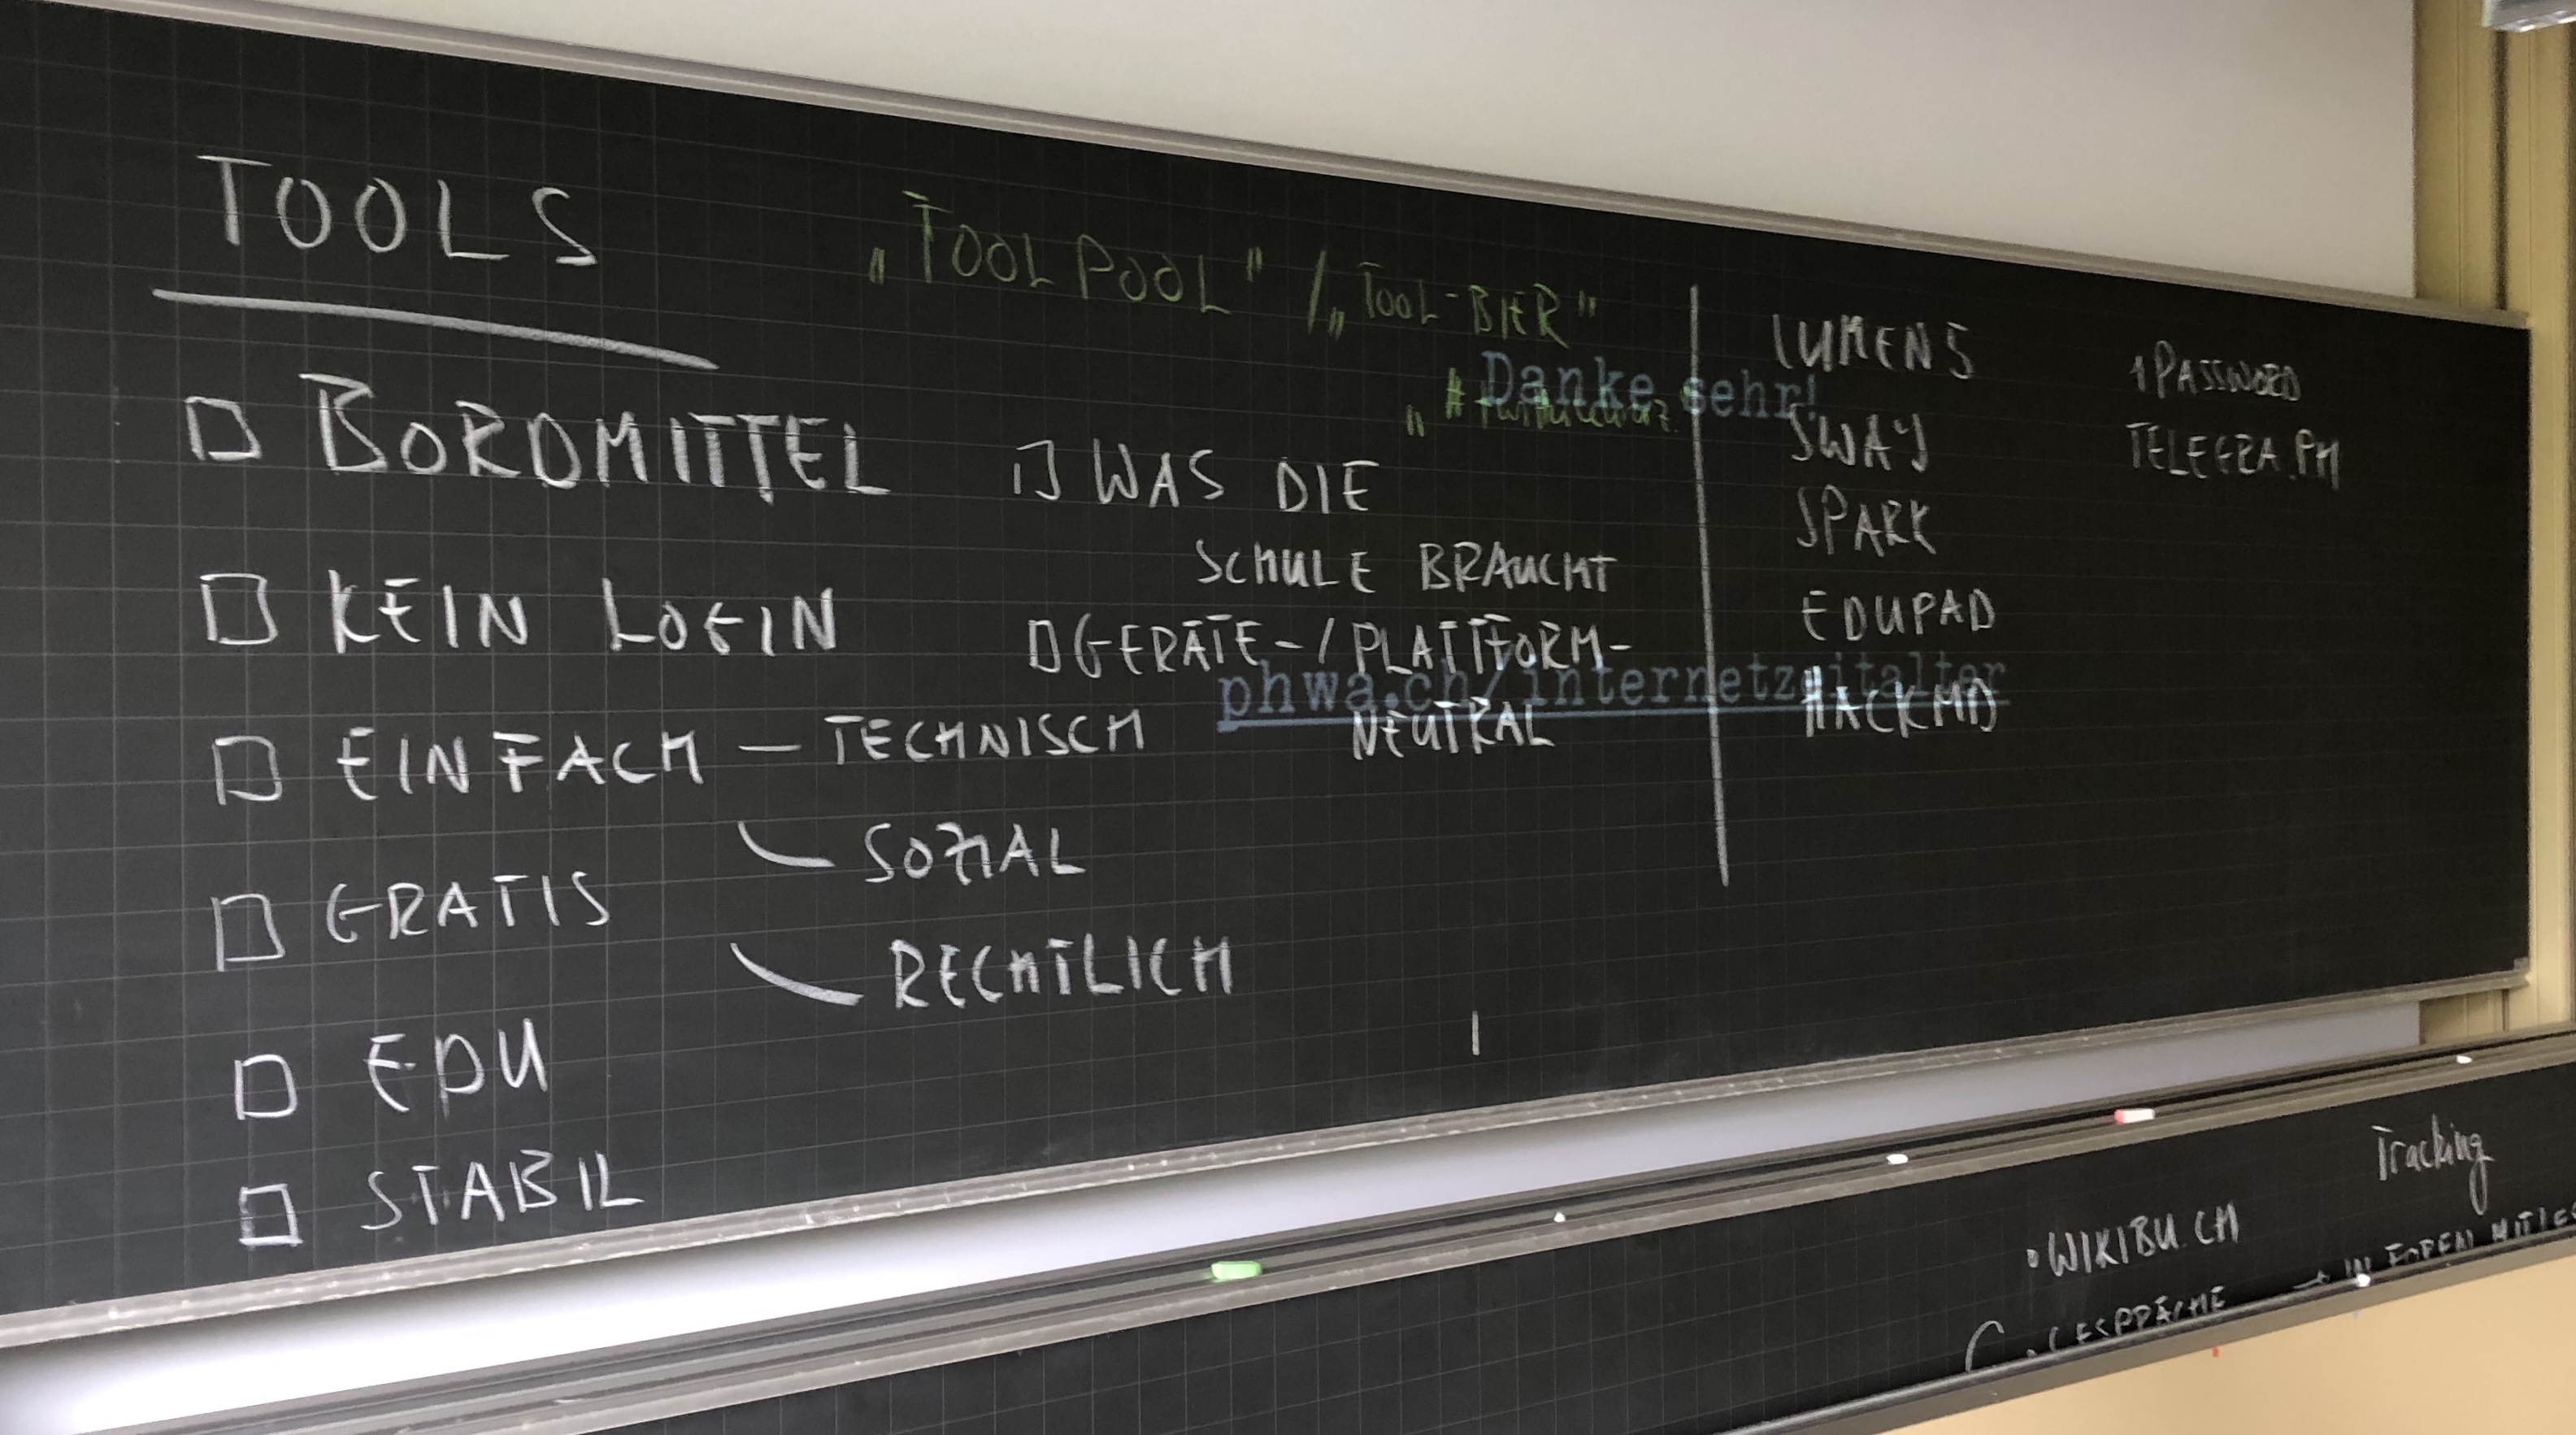 TOOLS
„TOOLPOOL" / „TOOL-BIER"
Danke sehr!
„#
□ BORDMITTEL
□ KEIN LOGIN
□ EINFACH — TECHNISCH
SOZIAL
RECHTLICH
□ GRATIS
□ EDU
□ STABIL
□ WAS DIE
SCHULE BRAUCHT
□ GERÄTE-/PLATTFORM-
NEUTRAL
phwa.ch/internetzeitalter
LUMEN5
SWAY
SPARK
EDUPAD
HACKMD
1PASSWORD
TELEGRA.PH
Tracking
• WIKIBU.CH
GESPRÄCHE → IN